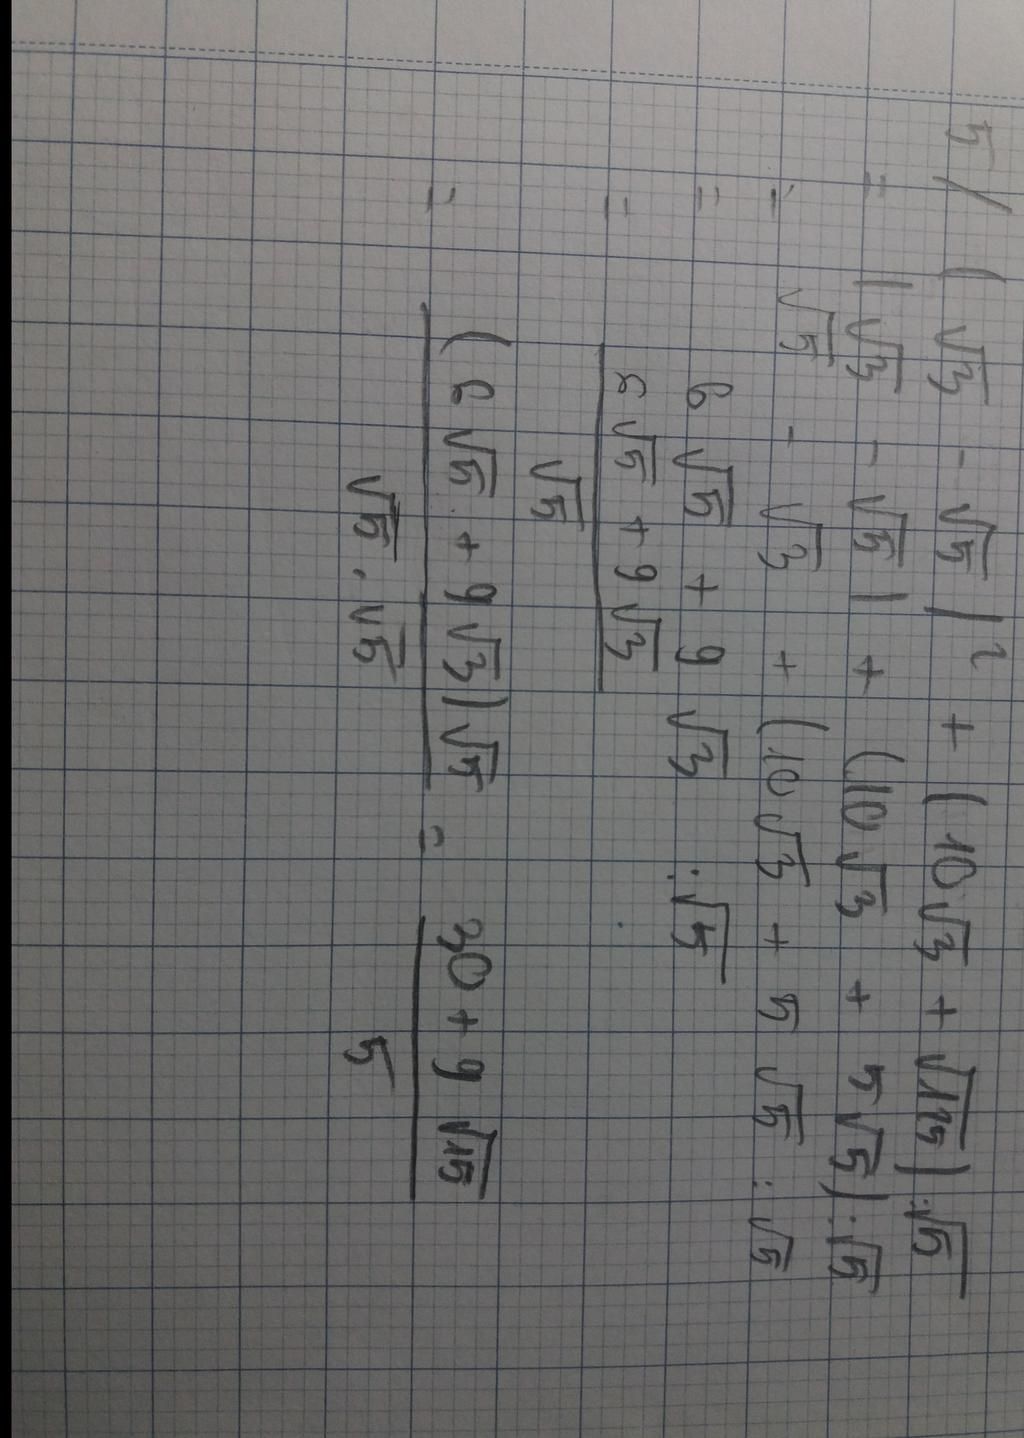 5/ (√3 - √5)² + (10√3 + √125) : √5
= |√3 - √5| + (10√3 + 5√5) : √5
= √5 - √3 + (10√3 + 5√5 : √5
= 6√5 + 9√3 : √5
= 6√5 + 9√3
√5
= (6√5 + 9√3)√5 = 30 + 9√15
√5 . √5 5